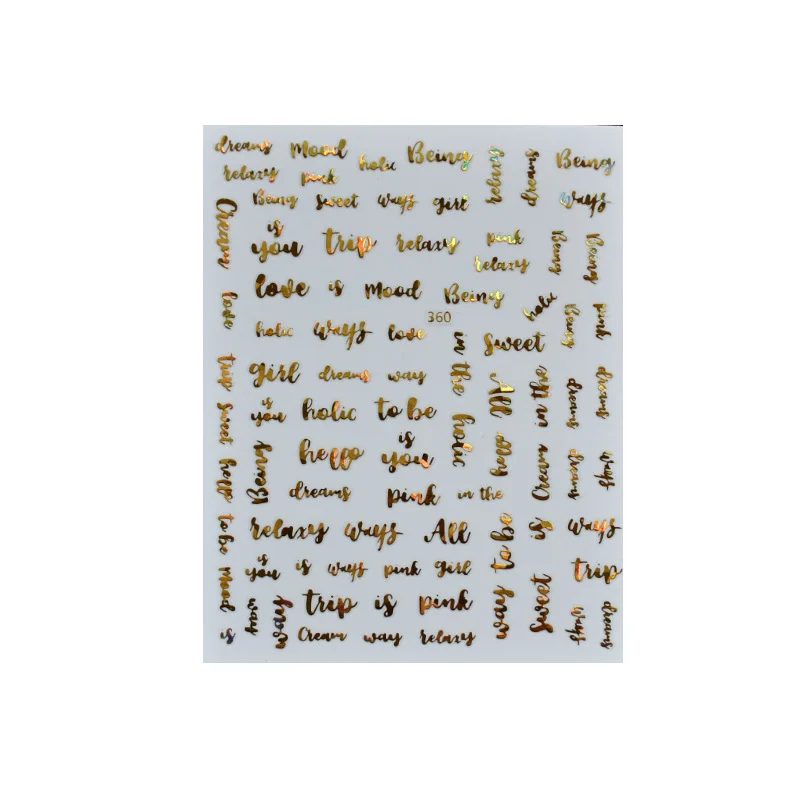 dreams Mood holic Being relaxy dreams Being
relaxy pink
Being sweet ways girl ways
Cream is
you trip relaxy pink Being Being
relaxy
love love is Mood Being holic
360
holic ways love in the holic sweet Being pink
trip girl dreams way All in the dreams dreams
sweet is
you holic to be
hello Being hello is
you hello Cream dreams ways
dreams pink in the
to be relaxy ways All way to be is ways
is
you is ways pink girl trip
Mood way way trip is pink sweet ways dreams
is Cream way relaxy